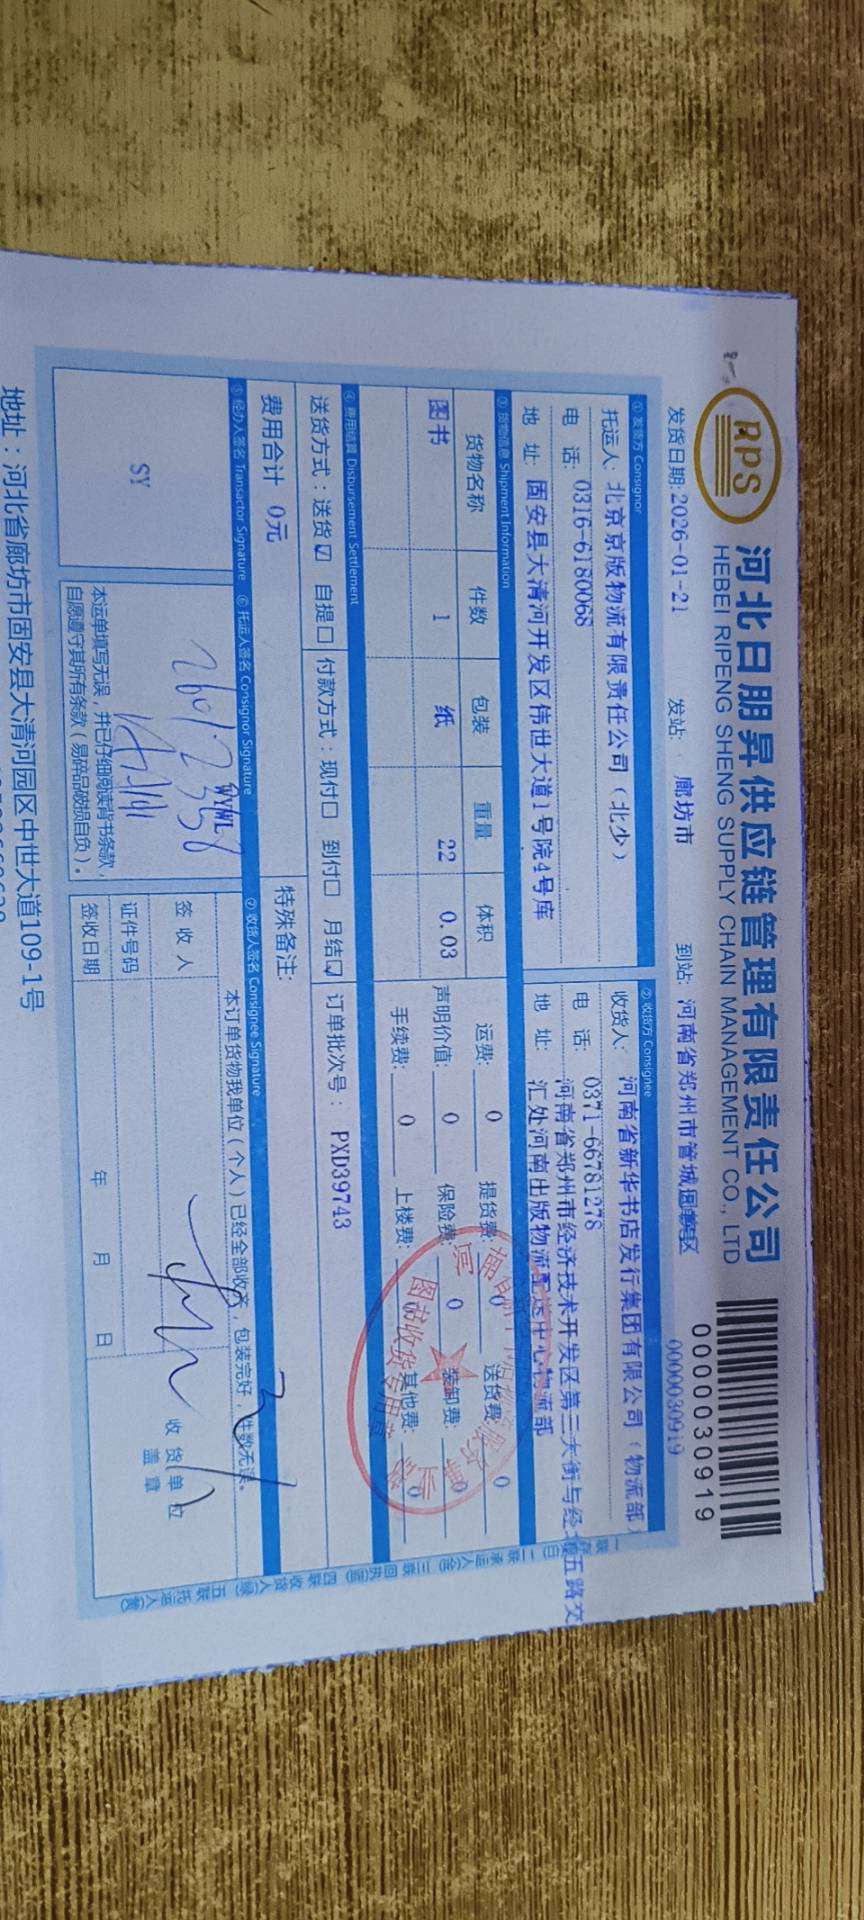 RPS
河北日朋昇供应链管理有限责任公司
HEBEI RIPENG SHENG SUPPLY CHAIN MANAGEMENT CO., LTD
0000030919
发货日期:2026-01-21 发站: 廊坊市 到站: 河南省郑州市管城回族区 0000030919
① 发货方 Consignor ② 收货方 Consignee
托运人: 北京京版物流有限责任公司（北少） 收货人: 河南省新华书店发行集团有限公司（物流部
电 话: 0316-6180068 电 话: 0371-66781278
地 址: 固安县大清河开发区伟世大道1号院4号库 地 址: 河南省郑州市经济技术开发区第三大街与经 五路交
汇处河南出版物流配送中心物流部
③ 货物信息 Shipment Information
货物名称 件数 包装 重量 体积 运费: 0 提货费: 0 送货费: 0
图书 1 纸 22 0.03 声明价值: 0 保险费: 0 装卸费: 0
手续费: 0 上楼费: 0 其他费: 0
图书收货专用章
④ 费用结算 Disbursement Settlement
送货方式：送货☑ 自提□ 付款方式：现付□ 到付□ 月结☑ 订单批次号： PXD39743
费用合计 0元 特殊备注:
⑤ 经办人签名 Transactor Signature ⑥ 托运人签名 Consignor Signature ⑦ 收货人签名 Consignee Signature
SY
WYWL
2601.2358
本运单填写无误，并已仔细阅读背书条款，
自愿遵守其所有条款（易碎品破损自负）。
本订单货物我单位（个人）已经全部收妥，包装完好，件数无误。
签 收 人
证件号码
签收日期 年 月 日
收 货 单 位
盖 章
一联存根(白) 二联承运人(红) 三联回执(蓝) 四联收货人(绿) 五联托运人(黄)
地址：河北省廊坊市固安县大清河园区中世大道109-1号